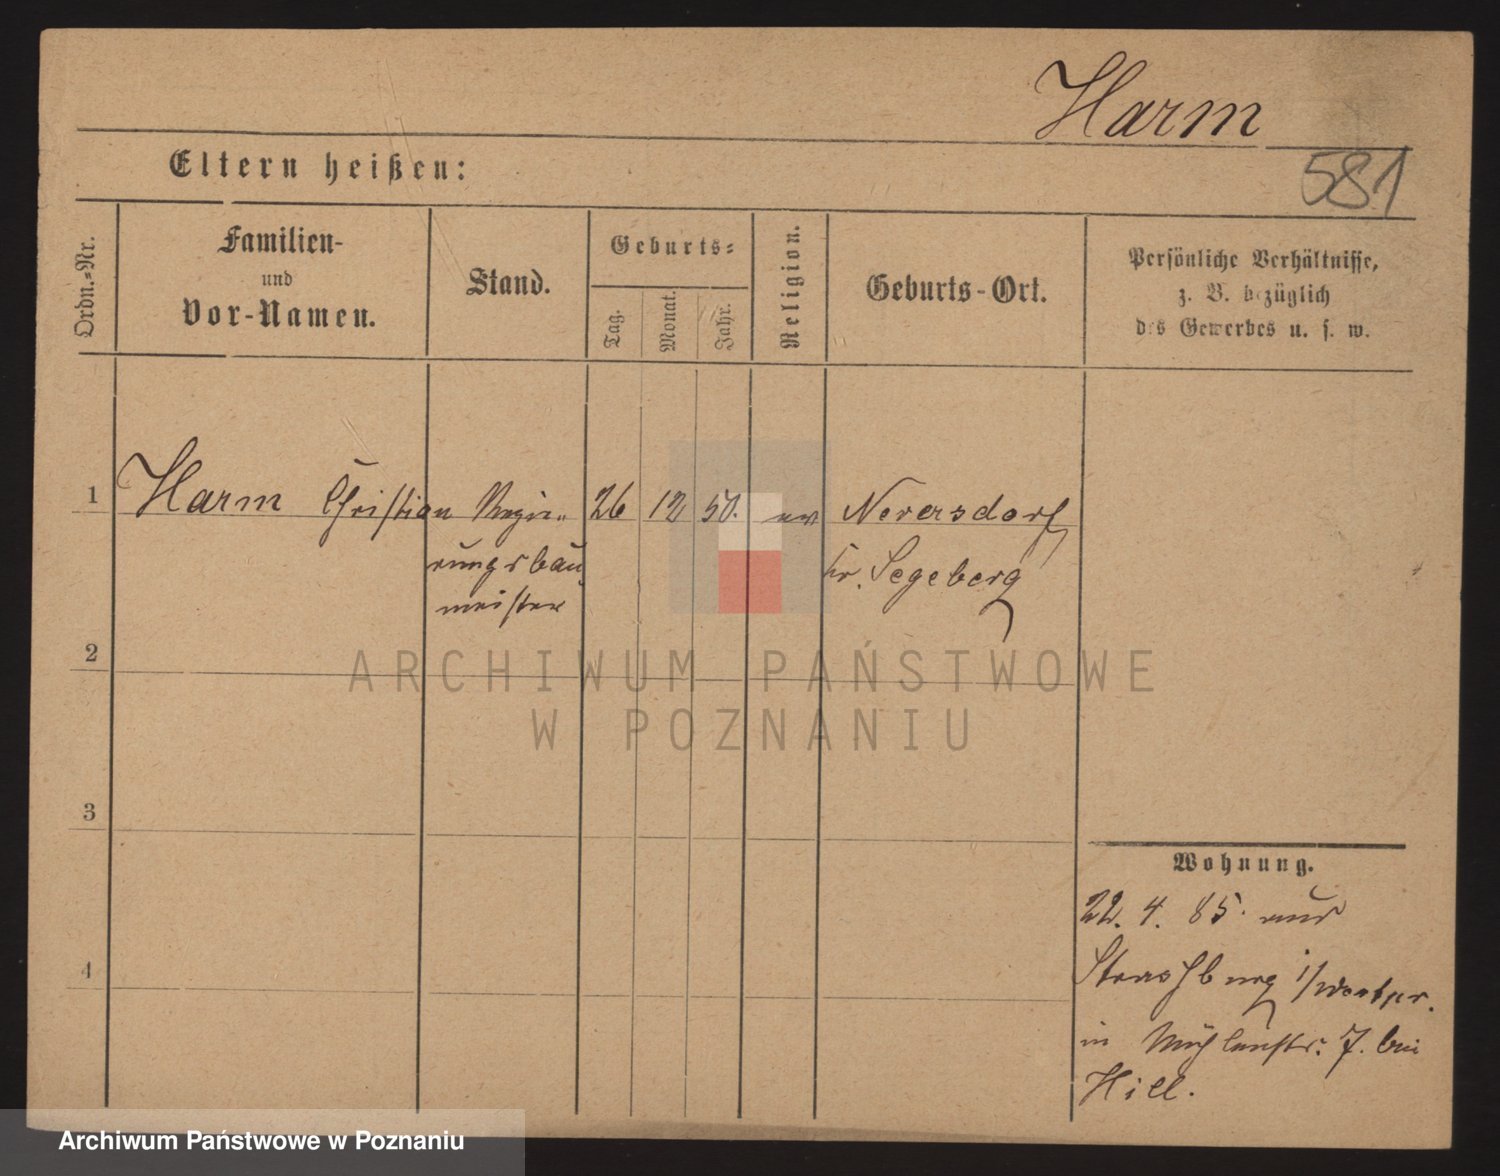 Harm
581
Eltern heißen:
Ordn.-Nr.
Familien-
und
Vor-Namen.
Stand.
Geburts-
Tag.
Monat.
Jahr.
Religion.
Geburts-Ort.
Persönliche Verhältnisse,
z. B. bezüglich
des Gewerbes u. s. w.
1 Harm Christian Regie- 26 12 50. ev Neversdorf
rungsbau kr. Segeberg
meister
2
3
4
Wohnung.
22. 4. 85. aus
Strasburg i/Westpr.
in Mühlenstr. 7. bei
Hill.
ARCHIWUM PAŃSTWOWE
W POZNANIU
Archiwum Państwowe w Poznaniu